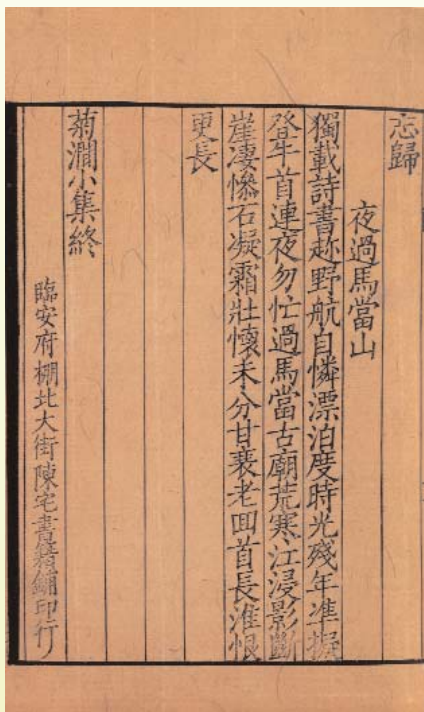 忘歸
夜過馬當山
獨載詩書趂野航自憐漂泊度時光殘年準擬
登牛首連夜勿忙過馬當古廟荒寒江浸影斷
崖凄慘石凝霜壯懷未分甘衰老回首長淮恨
更長
菊澗小集終
臨安府棚北大街陳宅書籍鋪印行